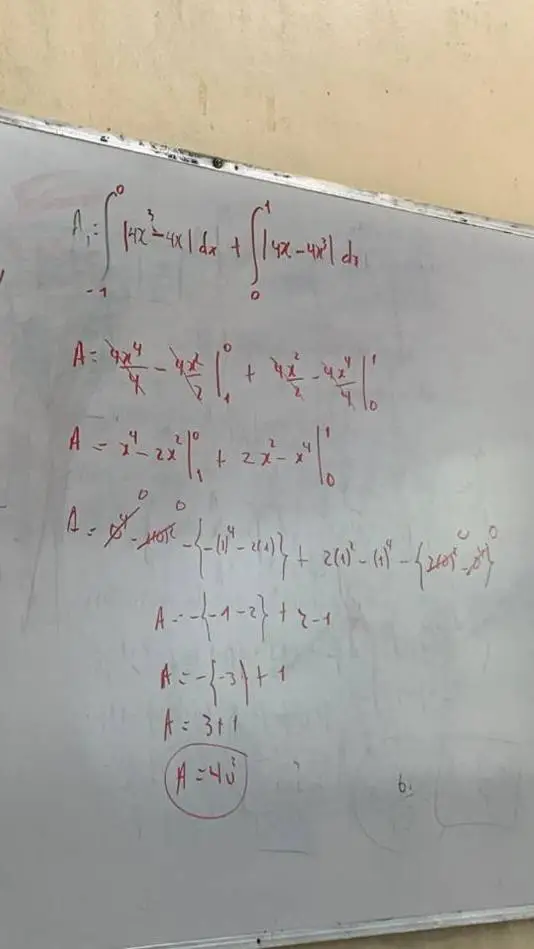 A₁ = ∫₋₁⁰ |4x³ - 4x| dx + ∫₀¹ |4x - 4x³| dx
A = 4x⁴/4 - 4x²/2 |₁⁰ + 4x²/2 - 4x⁴/4 |₀¹
A = x⁴ - 2x² |₁⁰ + 2x² - x⁴ |₀¹
A = 0⁴ 0 - 2(0)² 0 - {-(1)⁴ - 2(1)} + 2(1)² - (1)⁴ - {2(0)² 0 - 0⁴ 0}
A = -{-1 - 2} + 2 - 1
A = -{-3} + 1
A = 3 + 1
A = 4u²
6.